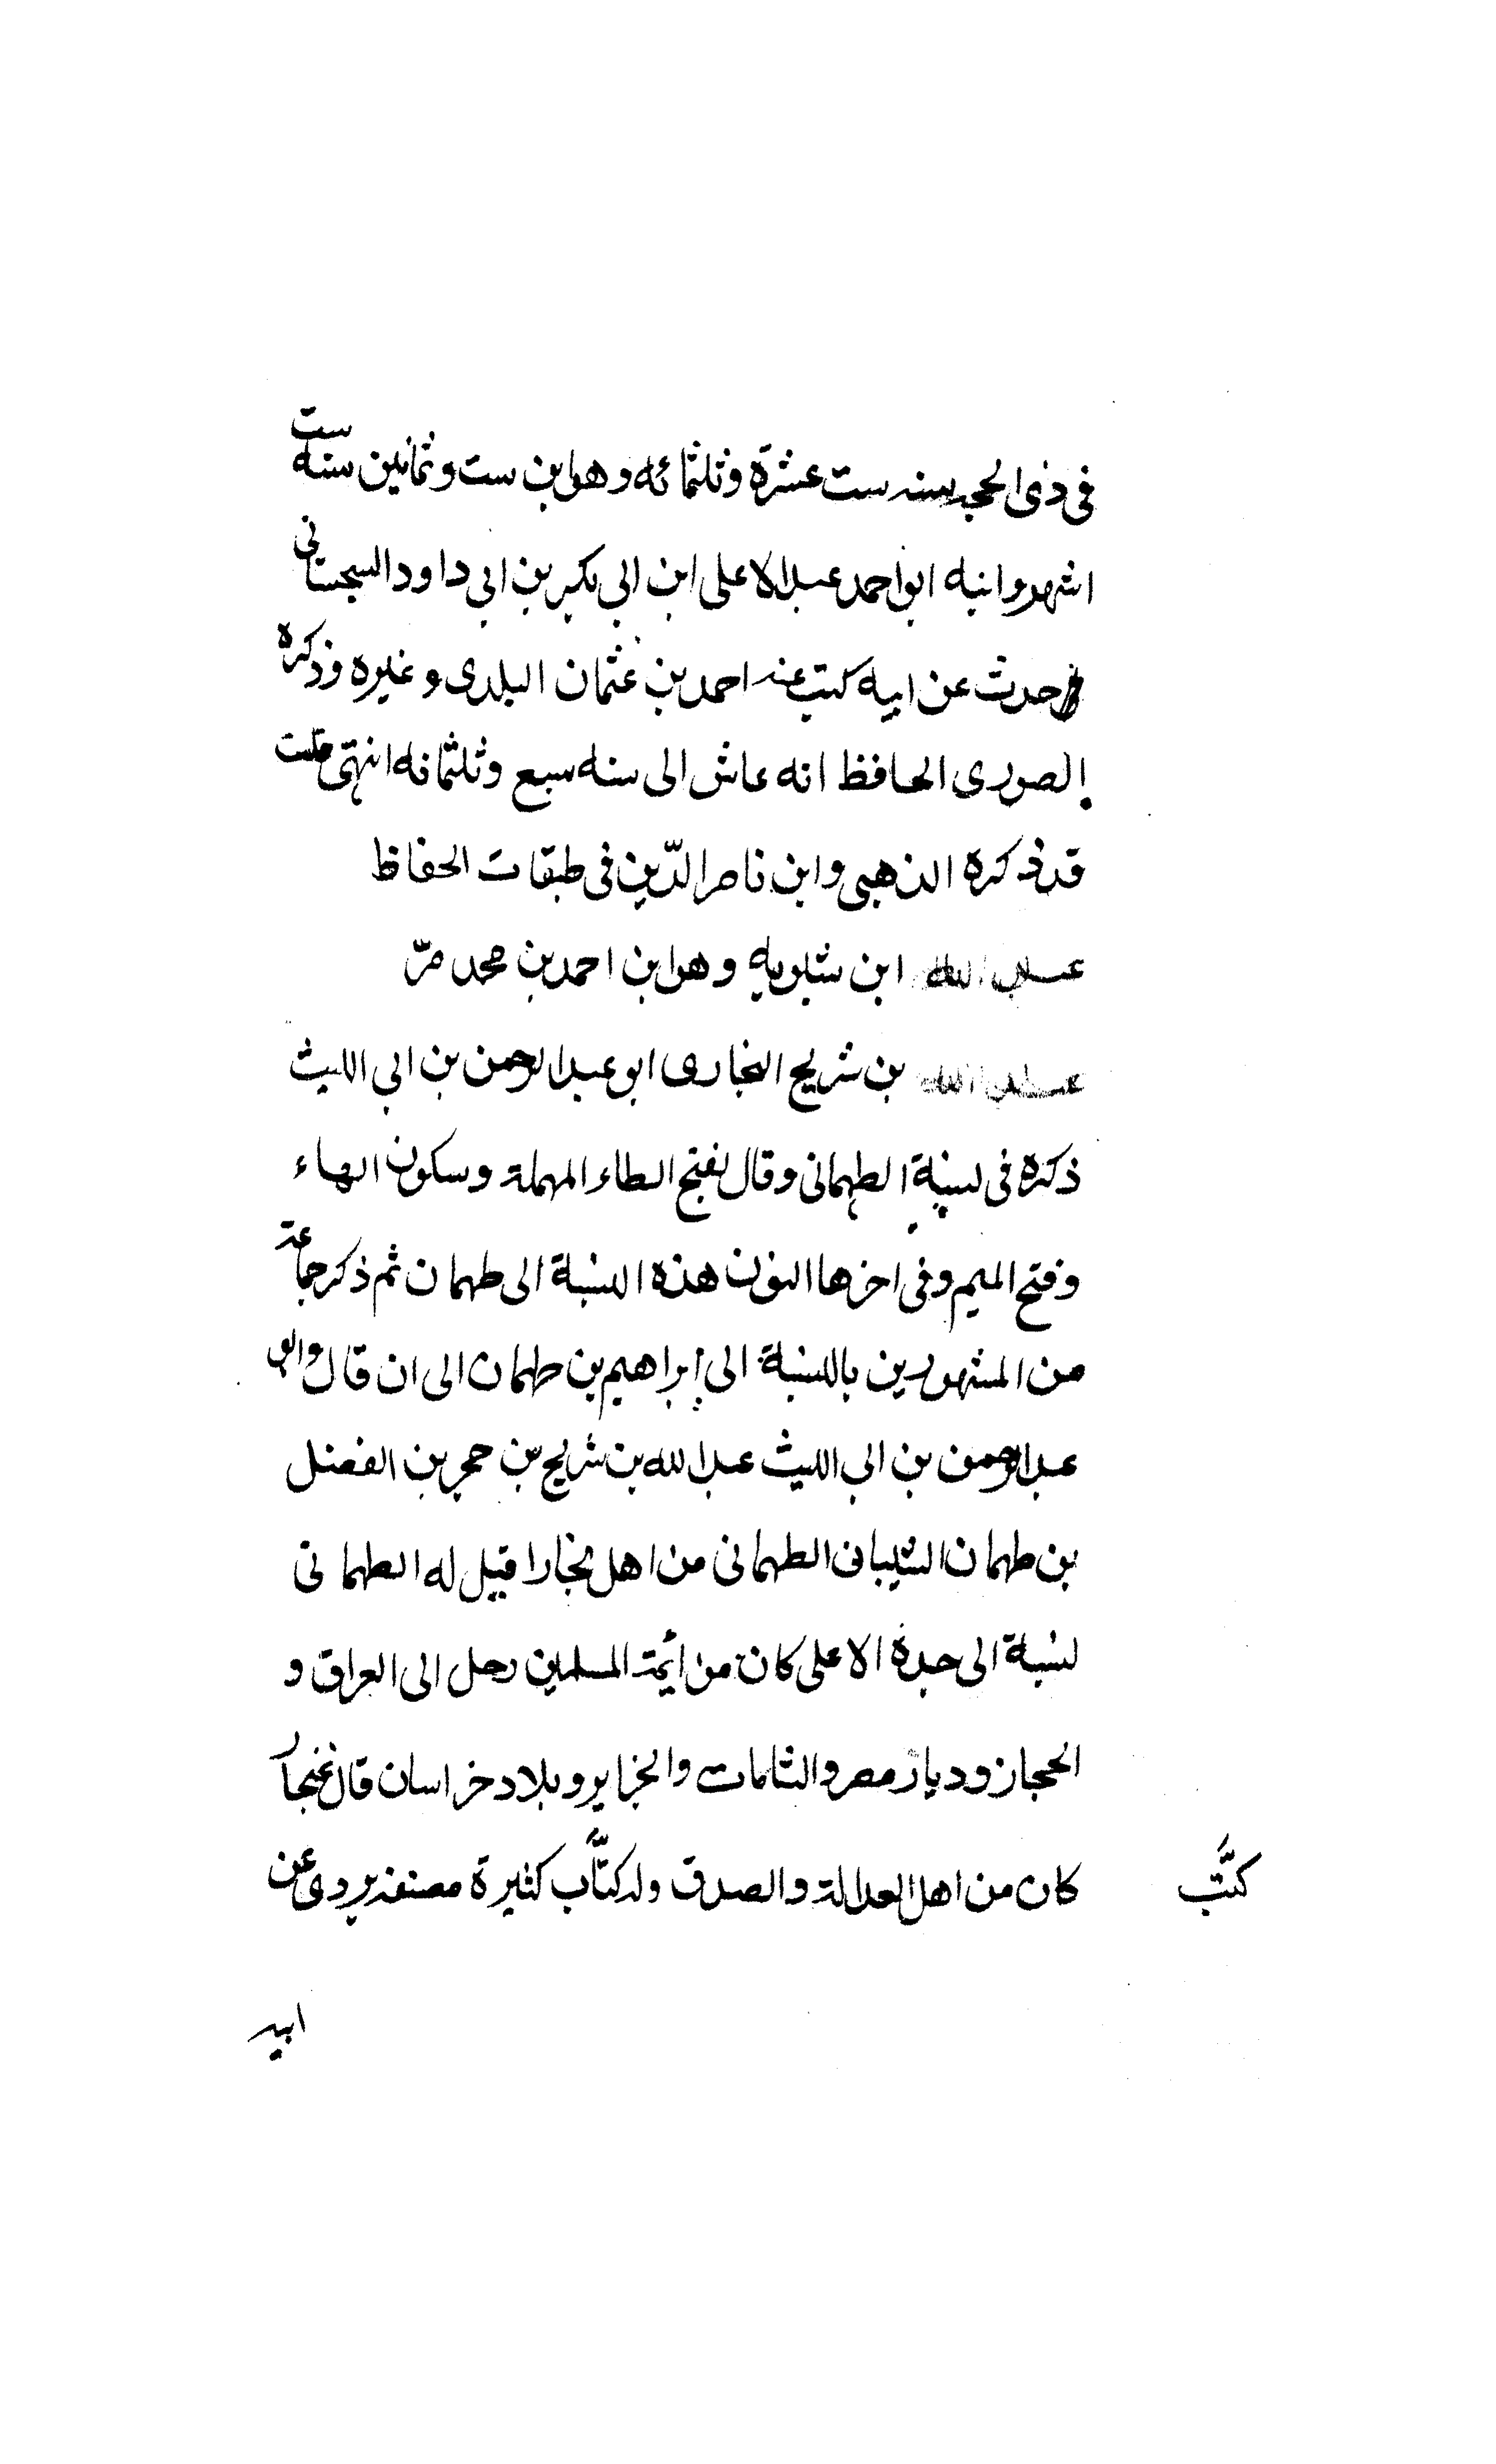 فى ذى الحجه سنه ست عشرة وثلثمائه وهو ابن ست وثمانين سنه ست
اشهر وابنه ابو احمد عبد الاعلى ابن ابي بكر بن ابى داود السجستانى
حدث عن ابيه كتب عنه احمد بن عثمان البلدى وغيره وذكره
الصورى الحافظ انه عاش الى سنه سبع وثلثمائه انتهى قلت
قد ذكره الذهبى وابن ناصر الدّين فى طبقات الحفاظ
عبد الله ابن شبويه وهو ابن احمد بن محمد مرّ
عبد الله بن شريح البخارى ابو عبد الرحمن بن ابى الليث
ذكره فى نسبة الطهمانى وقال بفتح الطاء المهملة وسكون الهاء
وفتح الميم وفى اخرها النون هذه النسبة الى طهمان ثم ذكر جماعة
من المشهورين بالنسبة الى ابراهيم بن طهمان الى ان قال وابو
عبد الرحمن بن ابى الليث عبد الله بن شريح بن حجر بن الفضل
بن طهمان الشيبانى الطهمانى من اهل بخارا قيل له الطهمانى
نسبة الى جده الاعلى كان من ائمة المسلمين رحل الى العراق و
الحجاز وديار مصر والشامات والجزاير وبلاد خراسان قال غنجار
كان من اهل العدالة والصدق وله كتَّاب كثيرة مصنفه يروى عن
كتَّب
ابيه